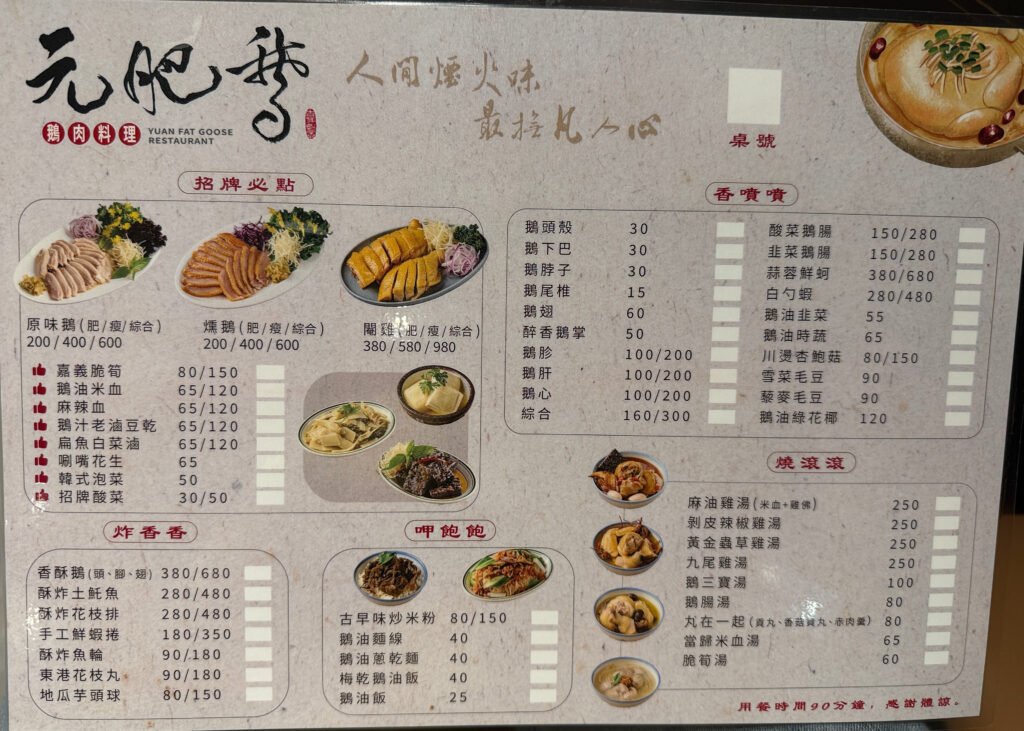 元肥鵝
鵝肉料理
YUAN FAT GOOSE
RESTAURANT
人間煙火味
最撫凡人心
桌號
招牌必點
原味鵝(肥/瘦/綜合)
200/400/600
燻鵝(肥/瘦/綜合)
200/400/600
閹雞(肥/瘦/綜合)
380/580/980
嘉義脆筍 80/150
鵝油米血 65/120
麻辣血 65/120
鵝汁老滷豆乾 65/120
扁魚白菜滷 65/120
唰嘴花生 65
韓式泡菜 50
招牌酸菜 30/50
香噴噴
鵝頭殼 30
鵝下巴 30
鵝脖子 30
鵝尾椎 15
鵝翅 60
醉香鵝掌 50
鵝胗 100/200
鵝肝 100/200
鵝心 100/200
綜合 160/300
酸菜鵝腸 150/280
韭菜鵝腸 150/280
蒜蓉鮮蚵 380/680
白勺蝦 280/480
鵝油韭菜 55
鵝油時蔬 65
川燙杏鮑菇 80/150
雪菜毛豆 90
藜麥毛豆 90
鵝油綠花椰 120
炸香香
香酥鵝(頭、腳、翅) 380/680
酥炸土魠魚 280/480
酥炸花枝排 280/480
手工鮮蝦捲 180/350
酥炸魚輪 90/180
東港花枝丸 90/180
地瓜芋頭球 80/150
呷飽飽
古早味炒米粉 80/150
鵝油麵線 40
鵝油蔥乾麵 40
梅乾鵝油飯 40
鵝油飯 25
燒滾滾
麻油雞湯(米血+雞佛) 250
剝皮辣椒雞湯 250
黃金蟲草雞湯 250
九尾雞湯 250
鵝三寶湯 100
鵝腸湯 80
丸在一起(貢丸、香菇貢丸、赤肉羹) 80
當歸米血湯 65
脆筍湯 60
用餐時間90分鐘，感謝體諒。